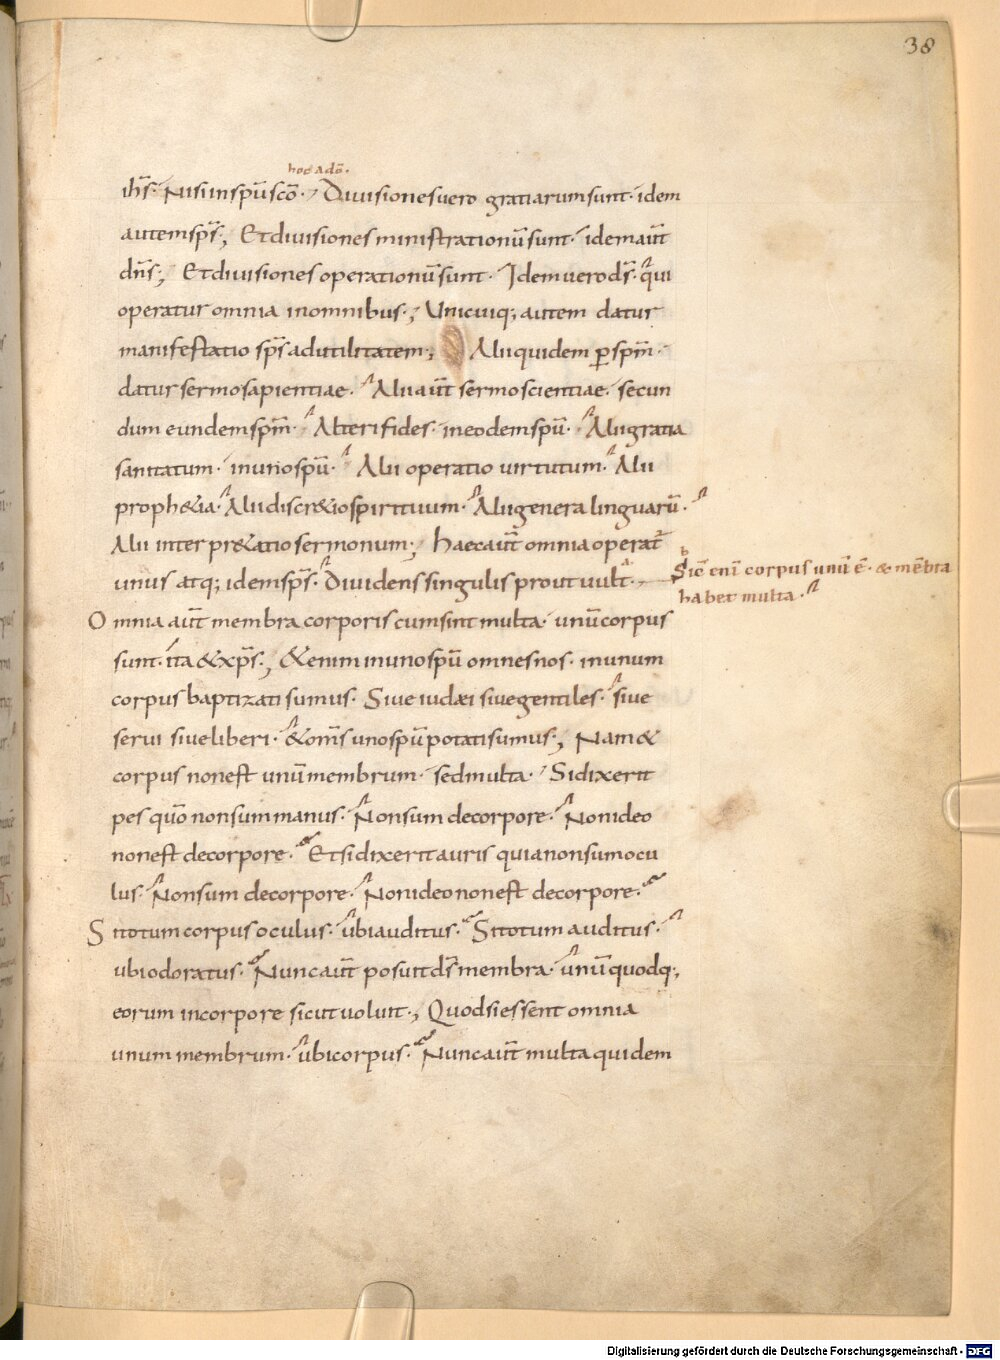 38
hoc a dõ.
ihs̄. Nisi in sp̄u sc̄o. Diuisiones uero gratiarum sunt. idem
autem sp̄s; Et diuisiones ministrationū sunt. idem aut̄
dn̄s; Et diuisiones operationū sunt. Idem uero ds̄. qui
operatur omnia in omnibus; Unicuiq; autem datur
manifestatio sp̄s ad utilitatem; Alii quidem ꝑ sp̄m.
datur sermo sapientiae. Alii aut̄ sermo scientiae. secun
dum eundem sp̄m. Alteri fides. in eodem sp̄u. Alii gratia
sanitatum. in uno sp̄u. Alii operatio uirtutum. Alii
proph&ia. Alii discr&io spirituum. Alii genera linguarū.
Alii interpr&atio sermonum; Haec aut̄ omnia operat̄
unus atq; idem sp̄s. Diuidens singulis prout uult.
Sic̄ eni corpus unū ē. & mēbra
habet multa.
Omnia aut̄ membra corporis cum sint multa. unū corpus
sunt. ita & xp̄s; &enim in uno sp̄u omnes nos. in unum
corpus baptizati sumus. Siue iudæi siue gentiles. siue
serui siue liberi. & om̄s uno sp̄u potati sumus; Nam &
corpus non est unū membrum. sed multa. Si dixerit
pes quō non sum manus. Non sum de corpore. Non ideo
non est de corpore. Et si dixerit auris quia non sum ocu
lus. Non sum de corpore. Non ideo non est de corpore.
Si totum corpus oculus. ubi auditus. Si totum auditus.
ubi odoratus. Nunc aut̄ posuit ds̄ membra. unū quodq;
eorum in corpore sicut uoluit; Quod si essent omnia
unum membrum. ubi corpus. Nunc aut̄ multa quidem
Digitalisierung gefördert durch die Deutsche Forschungsgemeinschaft - DFG